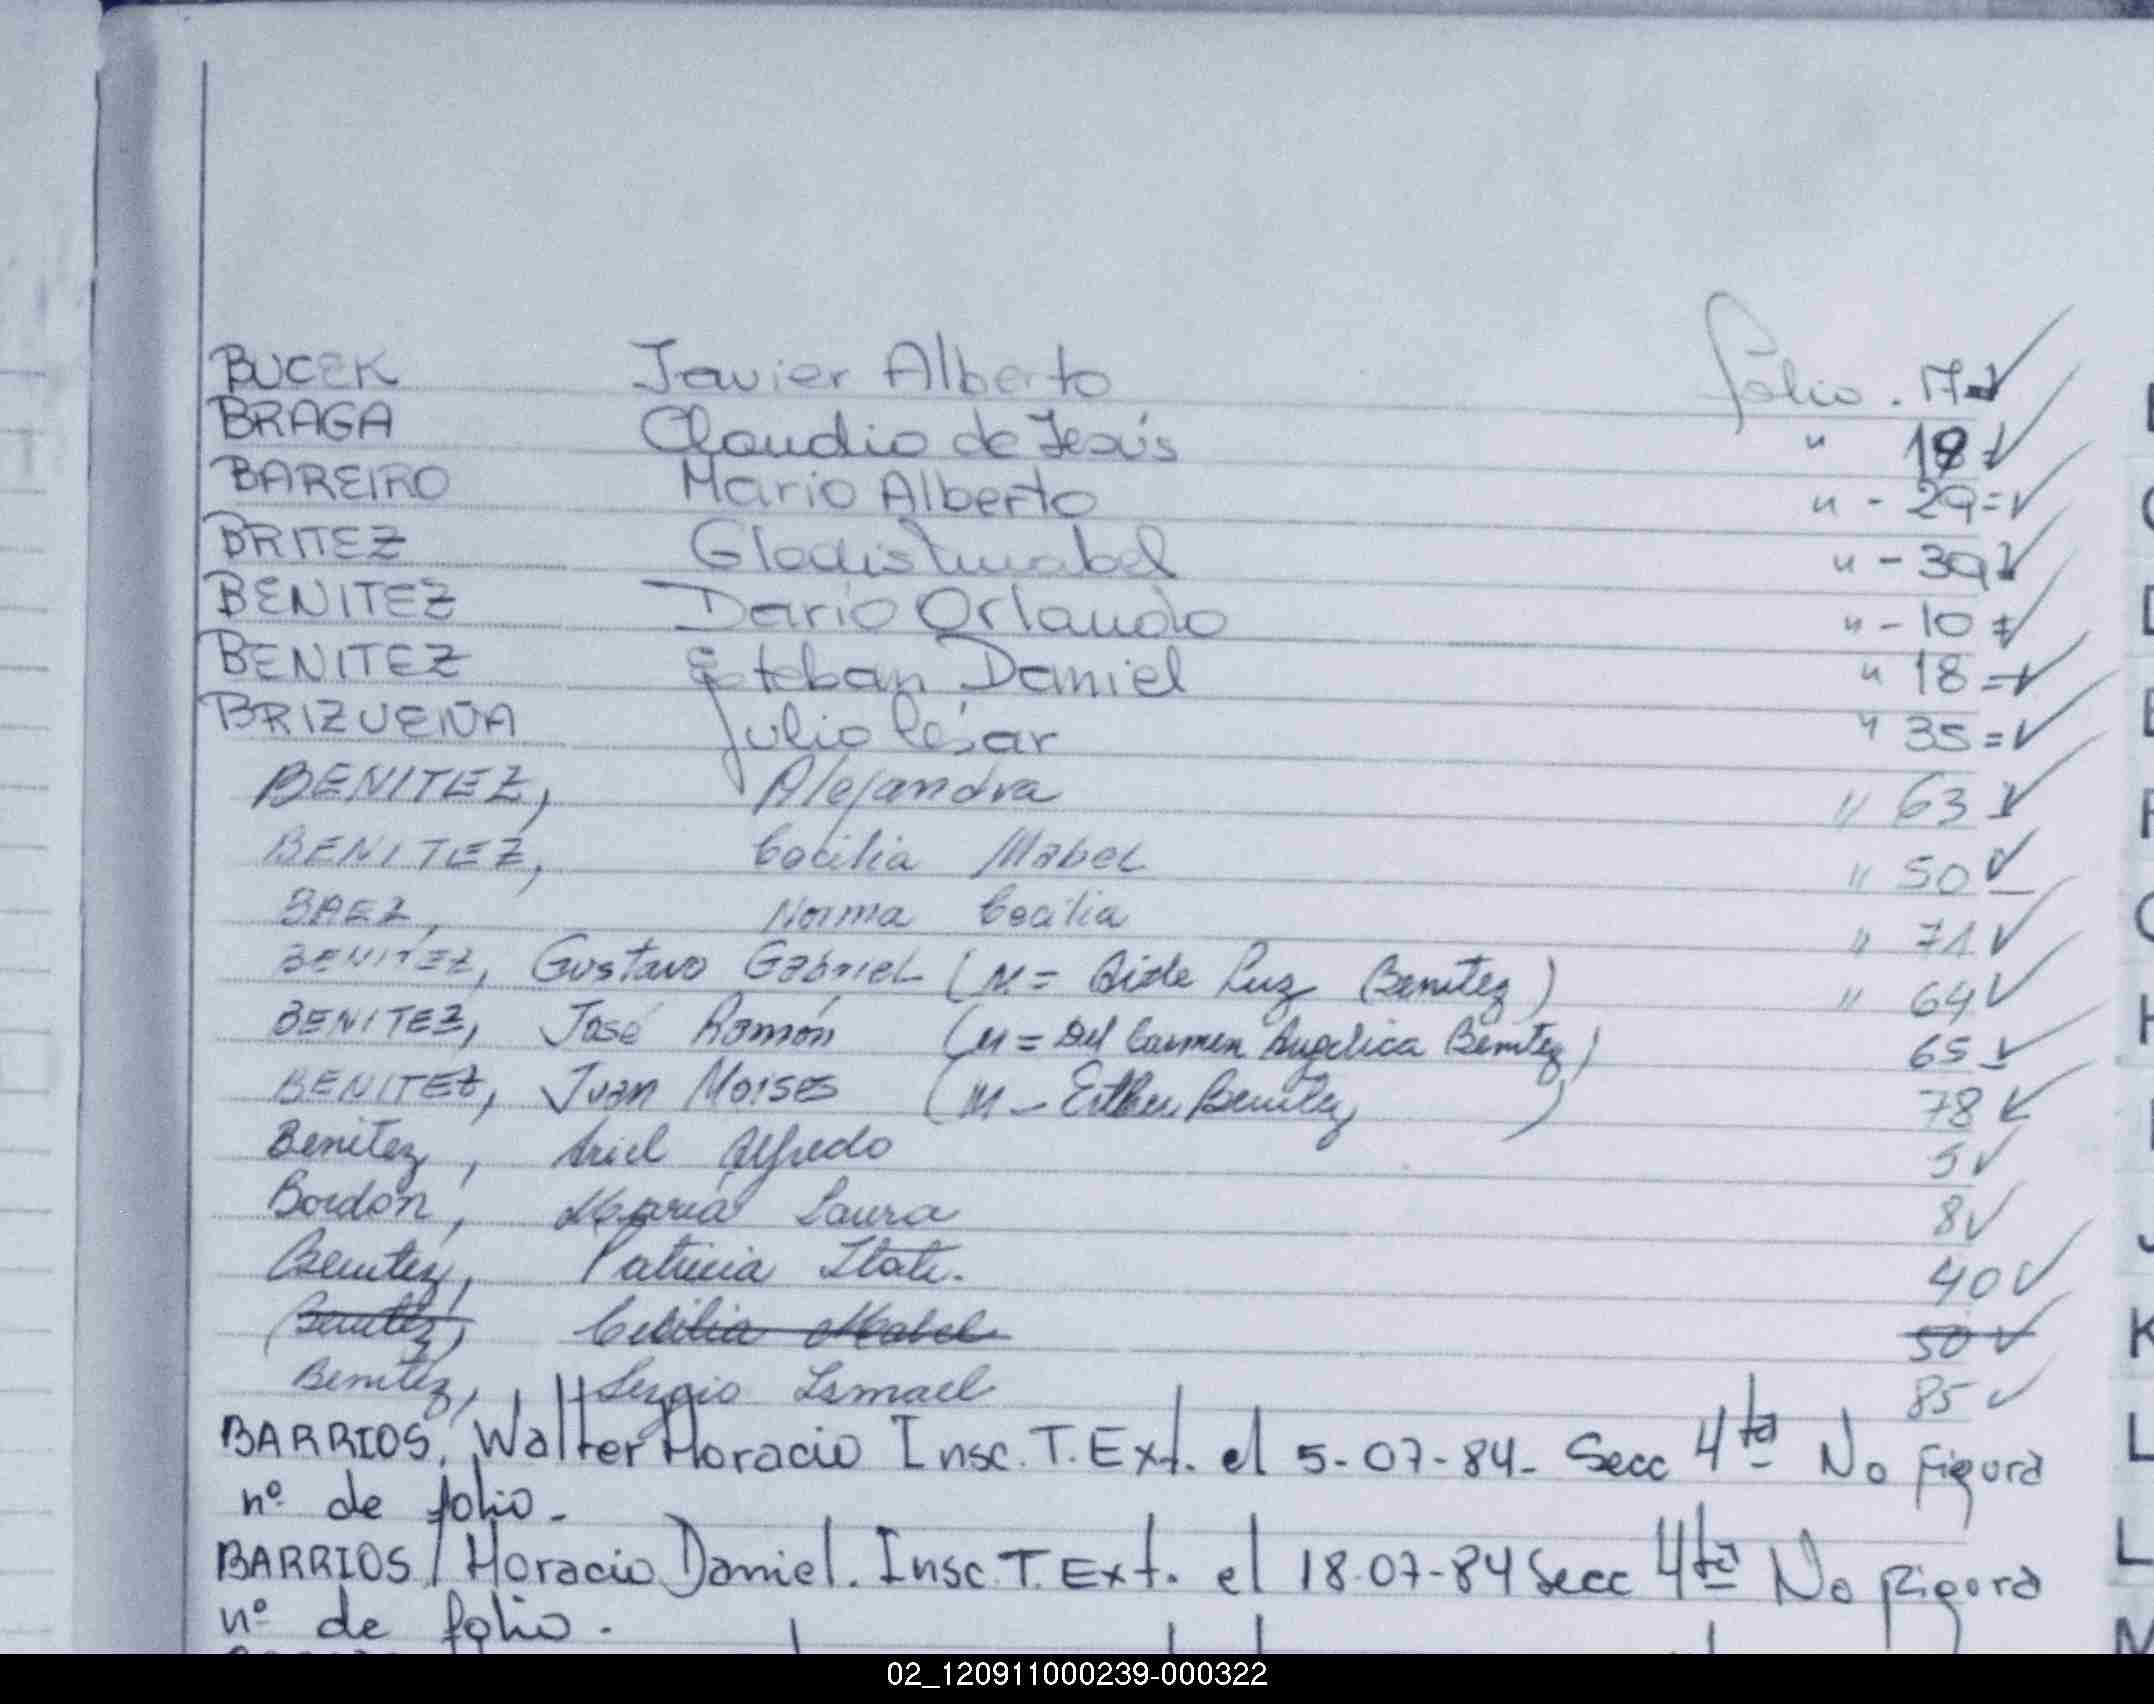 BUCEK Javier Alberto folio. 17
BRAGA Claudio de Jesús " 18
BAREIRO Mario Alberto " - 29 =
BRITEZ Gladis " - 39
BENITEZ Dario Orlando " - 10 =
BENITEZ Esteban Daniel " 18 =
BRIZUEÑA Julio César " 35 =
BENITEZ, Alejandra " 63
BENITEZ, Cecilia Mabel " 50
BAEZ, Norma Cecilia " 71
BENITEZ, Gustavo Gabriel (M = Aide Luz Benitez) " 64
BENITEZ, José Ramón (M = Del Carmen Angelica Benitez) 65
BENITEZ, Juan Moises (M - Esther Benitez) 78
Benitez, Ariel Alfredo 5
Bordón, María Laura 8
Benitez, Patricia Itati. 40
Benitez, Cecilia Mabel 50
Benitez, Sergio Ismael 85
BARRIOS, Walter Horacio Insc. T. Ext. el 5-07-84- Secc 4ta No figura
nº de folio.-
BARRIOS, Horacio Daniel. Insc. T. Ext. el 18-07-84 Secc 4ta No figura
nº de folio.
02_120911000239-000322